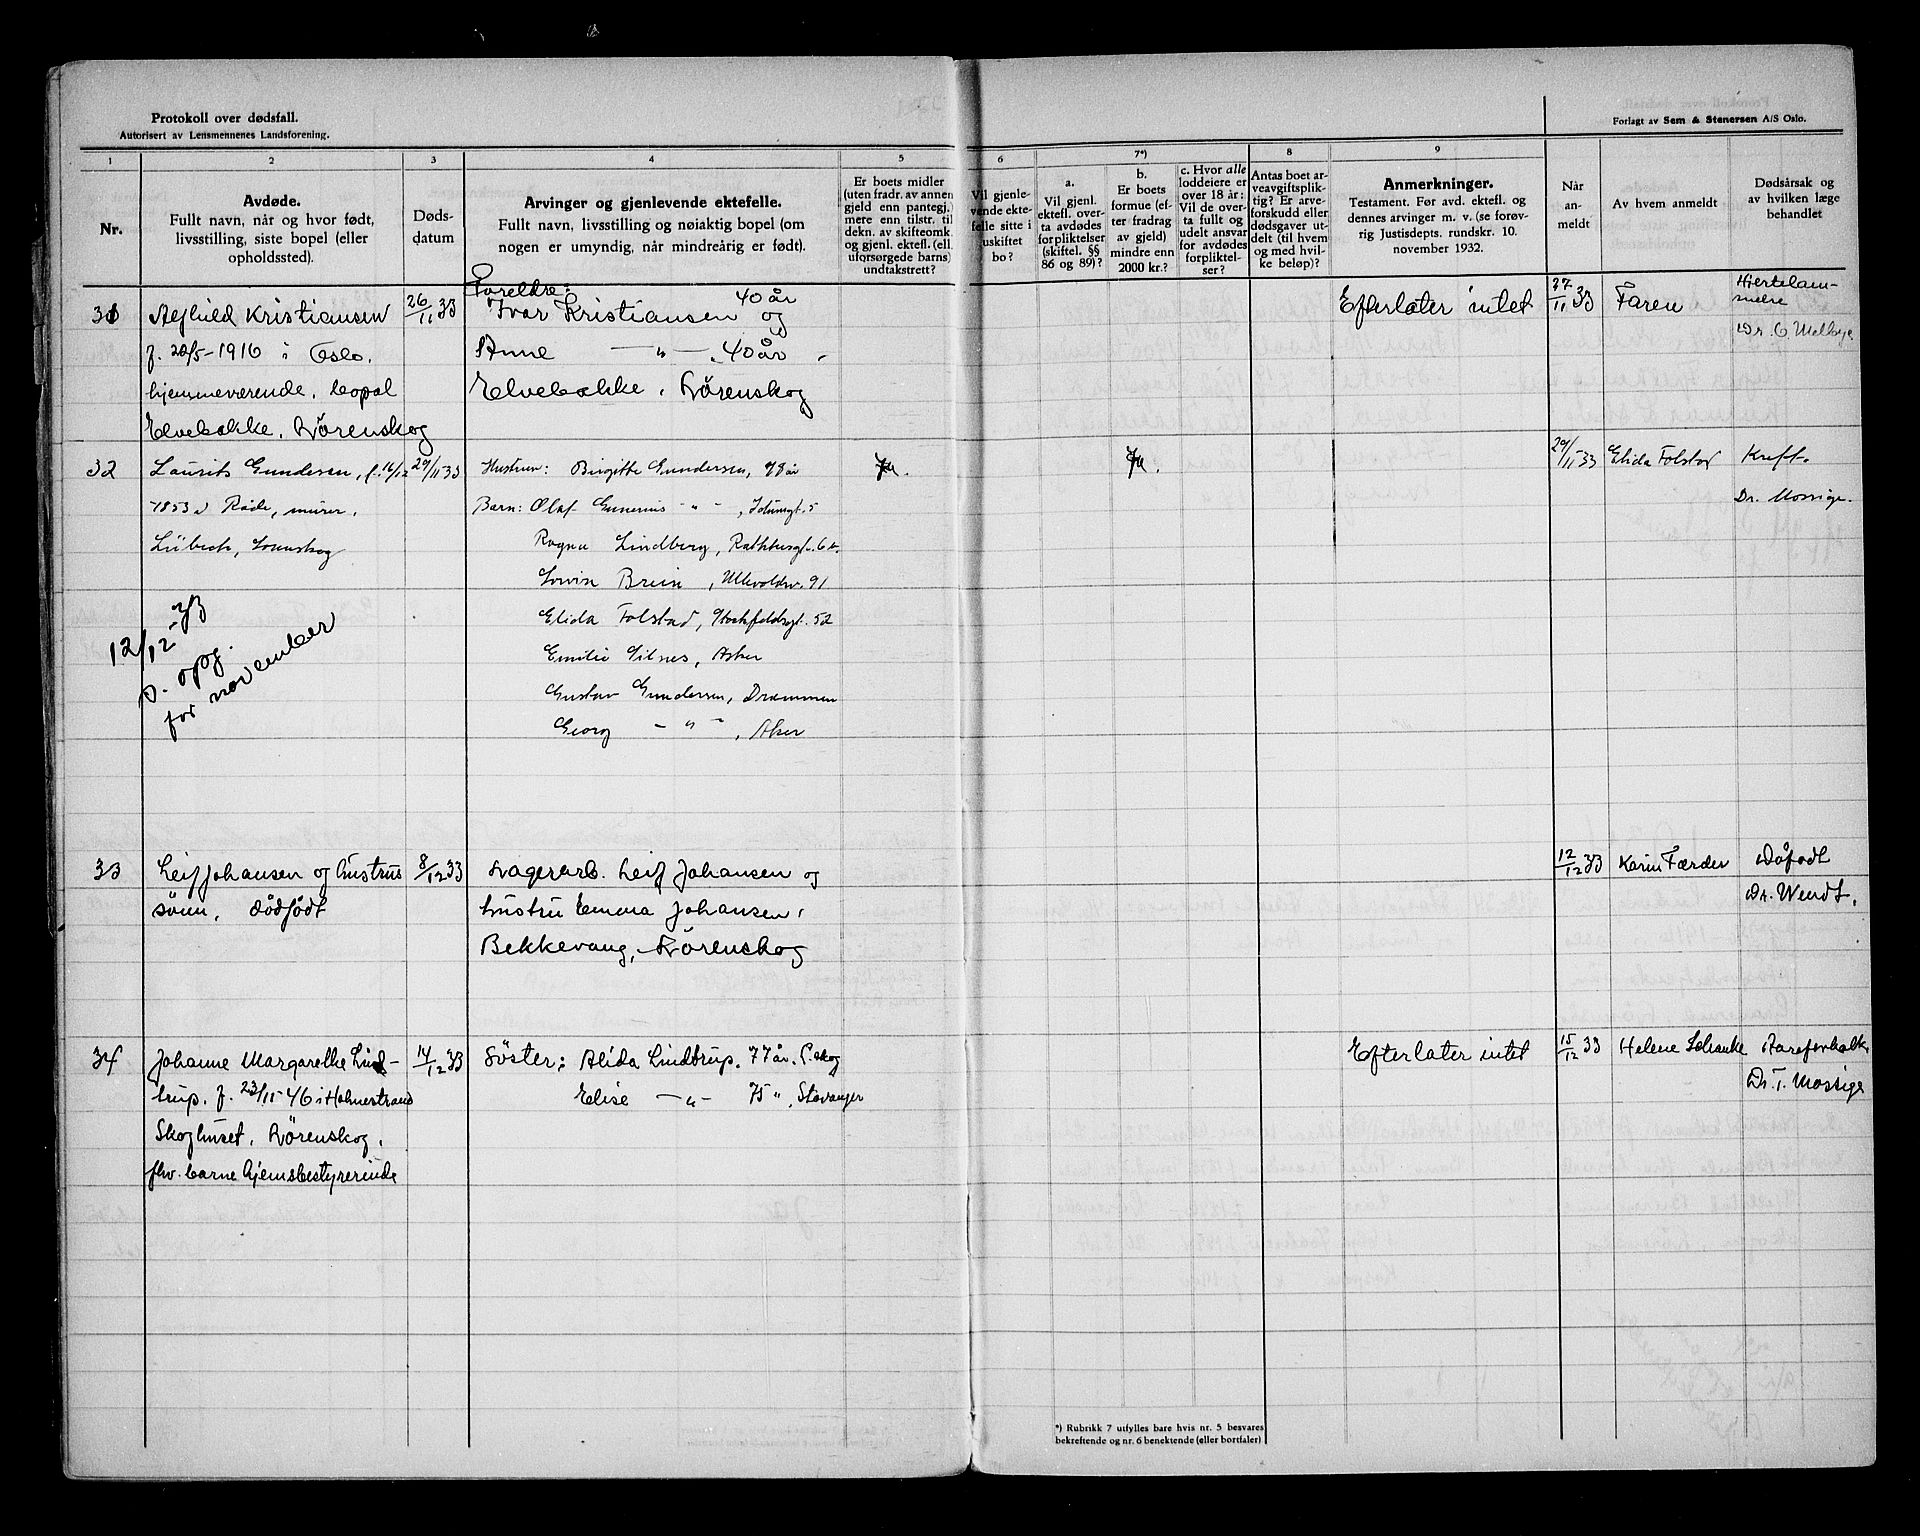 Protokoll over dødsfall.
Autorisert av Lensmennenes Landsforening.
Forlagt av Sem & Stenersen A/S Oslo.
1 2 3 4 5 6 7*) 8 9
Nr.
Avdøde.
Fullt navn, når og hvor født,
livsstilling, siste bopel (eller
opholdssted).
Døds-
datum
Arvinger og gjenlevende ektefelle.
Fullt navn, livsstilling og nøiaktig bopel (om
nogen er umyndig, når mindreårig er født).
Er boets midler
(uten fradr. av annen
gjeld enn pantegj.)
mere enn tilstr. til
dekn. av skifteomk.
og gjenl. ektefl. (ell.
uforsørgede barns)
undtakstrett?
Vil gjenle-
vende ekte-
felle sitte i
uskiftet
bo?
a.
Vil gjenl.
ektefl. over-
ta avdødes
forpliktelser
(skiftel. §§
86 og 89)?
b.
Er boets
formue (ef-
ter fradrag
av gjeld)
mindre enn
2000 kr.?
c. Hvor alle
loddeiere er
over 18 år:
Vil de over-
ta fullt og
udelt ansvar
for avdødes
forpliktel-
ser?
Antas boet ar-
veavgiftsplik-
tig? Er arve-
forskudd eller
dødsgaver ut-
delt (til hvem
og med hvil-
ke beløp)?
Anmerkninger.
Testament. Før avd. ektefl. og
dennes arvinger m. v. (se forøv-
rig Justisdepts. rundskr. 10.
november 1932.
Når
an-
meldt
Av hvem anmeldt
Dødsårsak og
av hvilken læge
behandlet
31 Kristiansen
f. 20/5-1916 i Oslo.
hjemmeværende. bopal
Elvebakke. Lørenskog
26/11 33
Foreldre:
Ivar Kristiansen 40 år og
Anne — „ — . 40 år .
Elvebakke. Lørenskog
Efterlater intet
27/11 33
Faren
Hjertelam-
melse
Dr. O. Melbye
32
Laurits Gundersen, f. 16/12
1853 i Råde, murer.
Lübeck, Lørenskog
29/11 33
Hustru: Birgitte Gundersen, 78 år
Barn: Olaf Gunerius - „ - , Idunsgt. 5
Ragna Lindberg, Rathkesgt.
Brein , Ullevoldsv. 91
Elida Tolstad, 52
Emilie , Asker
Gustav Gundersen, Drammen
Georg - „ - , Aker
Ja.
Ja.
29/11 33
Elida Tolstad
Kreft.
Dr. Mossige.
12/12-33
s. opg.
for november
33
Leif Johansen og hustrus
sønn, dødfødt
8/12 33
Lagerarb. Leif Johansen og
hustru Emma Johansen,
Bekkevang, Lørenskog
12/12 33
Karin Færder
Dødfødt
Dr. Wendt.
34
Johanne Margarethe Lind-
trup. f. 23/11-46 i Holmestrand
Skoghuset, Lørenskog,
fhv. barnehjemsbestyrerinde
14/12 33
Søster: Alida Lindtrup. 77 år. L.skog
Elise — „ — 75 „ , Stavanger
Efterlater intet
15/12 33
Helene Schanke
Aareforkalk.
Dr. T. Mossige
*) Rubrikk 7 utfylles bare hvis nr. 5 besvares
bekreftende og nr. 6 benektende (eller bortfaler)